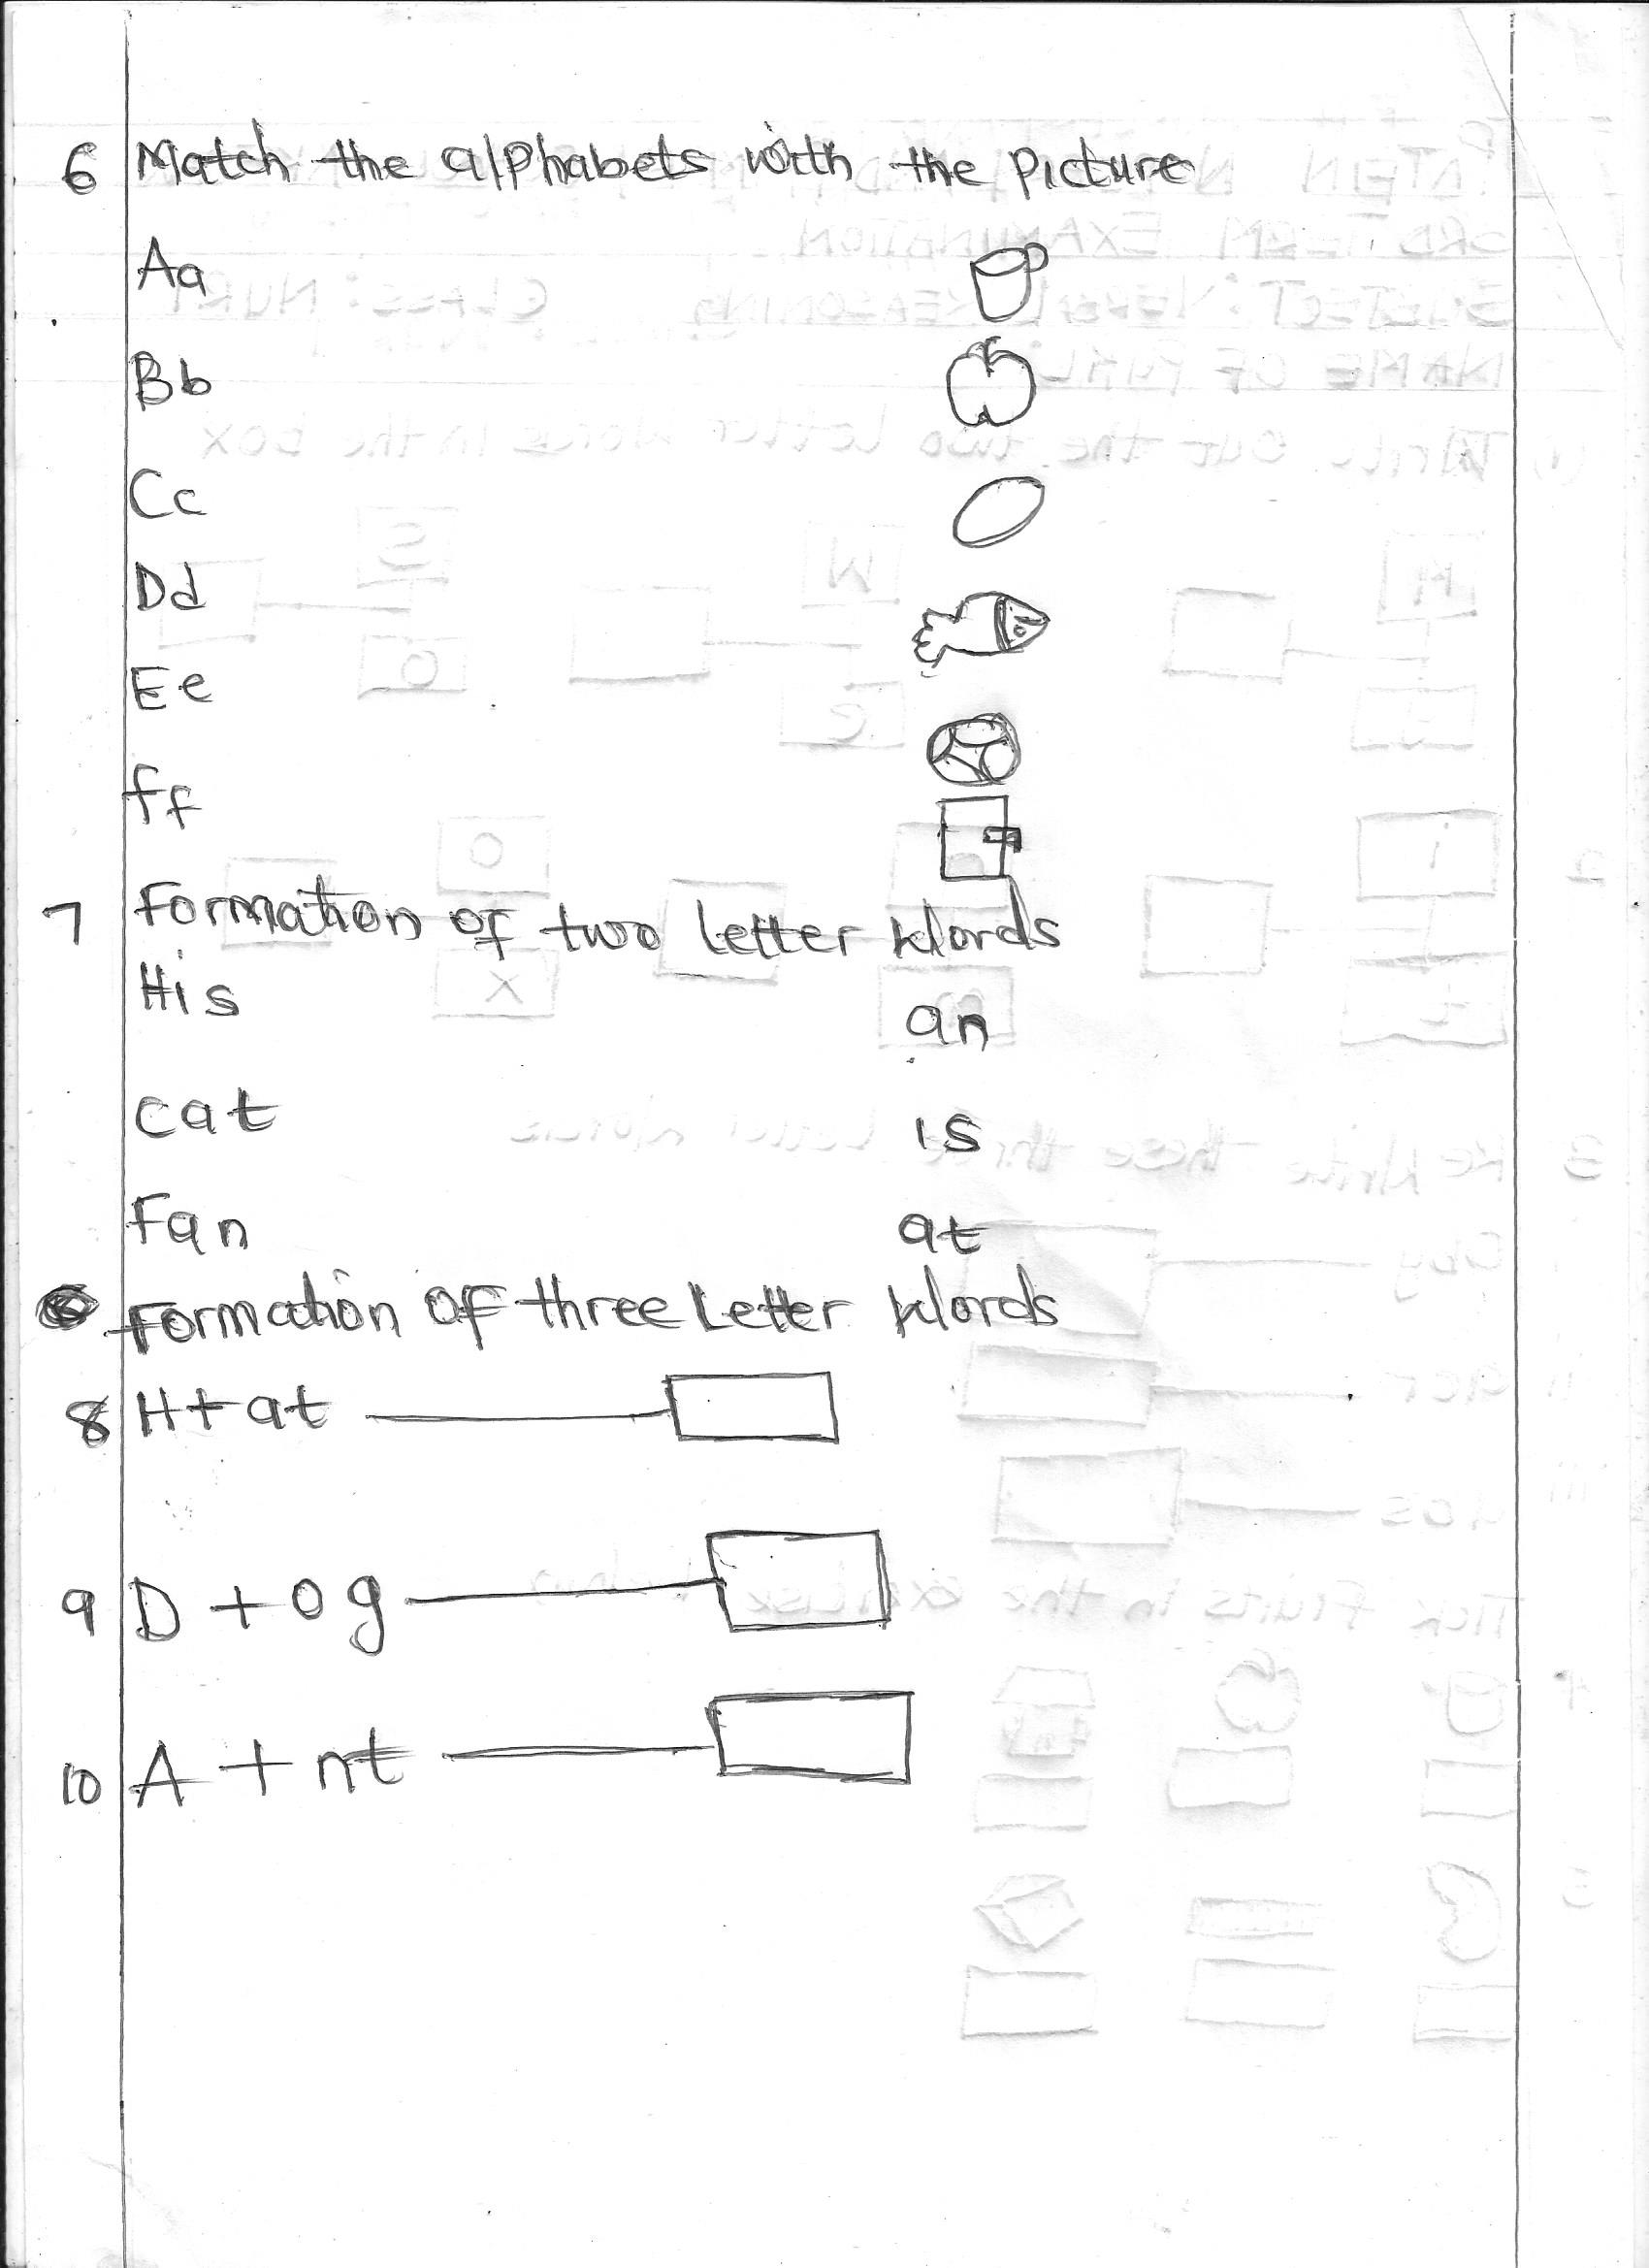 6 Match the alphabets with the Picture
Aa
Bb
Cc
Dd
Ee
ff
7 Formation of two letter Words
His an
cat is
Fan at
Formation of three Letter Words
8 H+at
9 D + og
10 A + nt